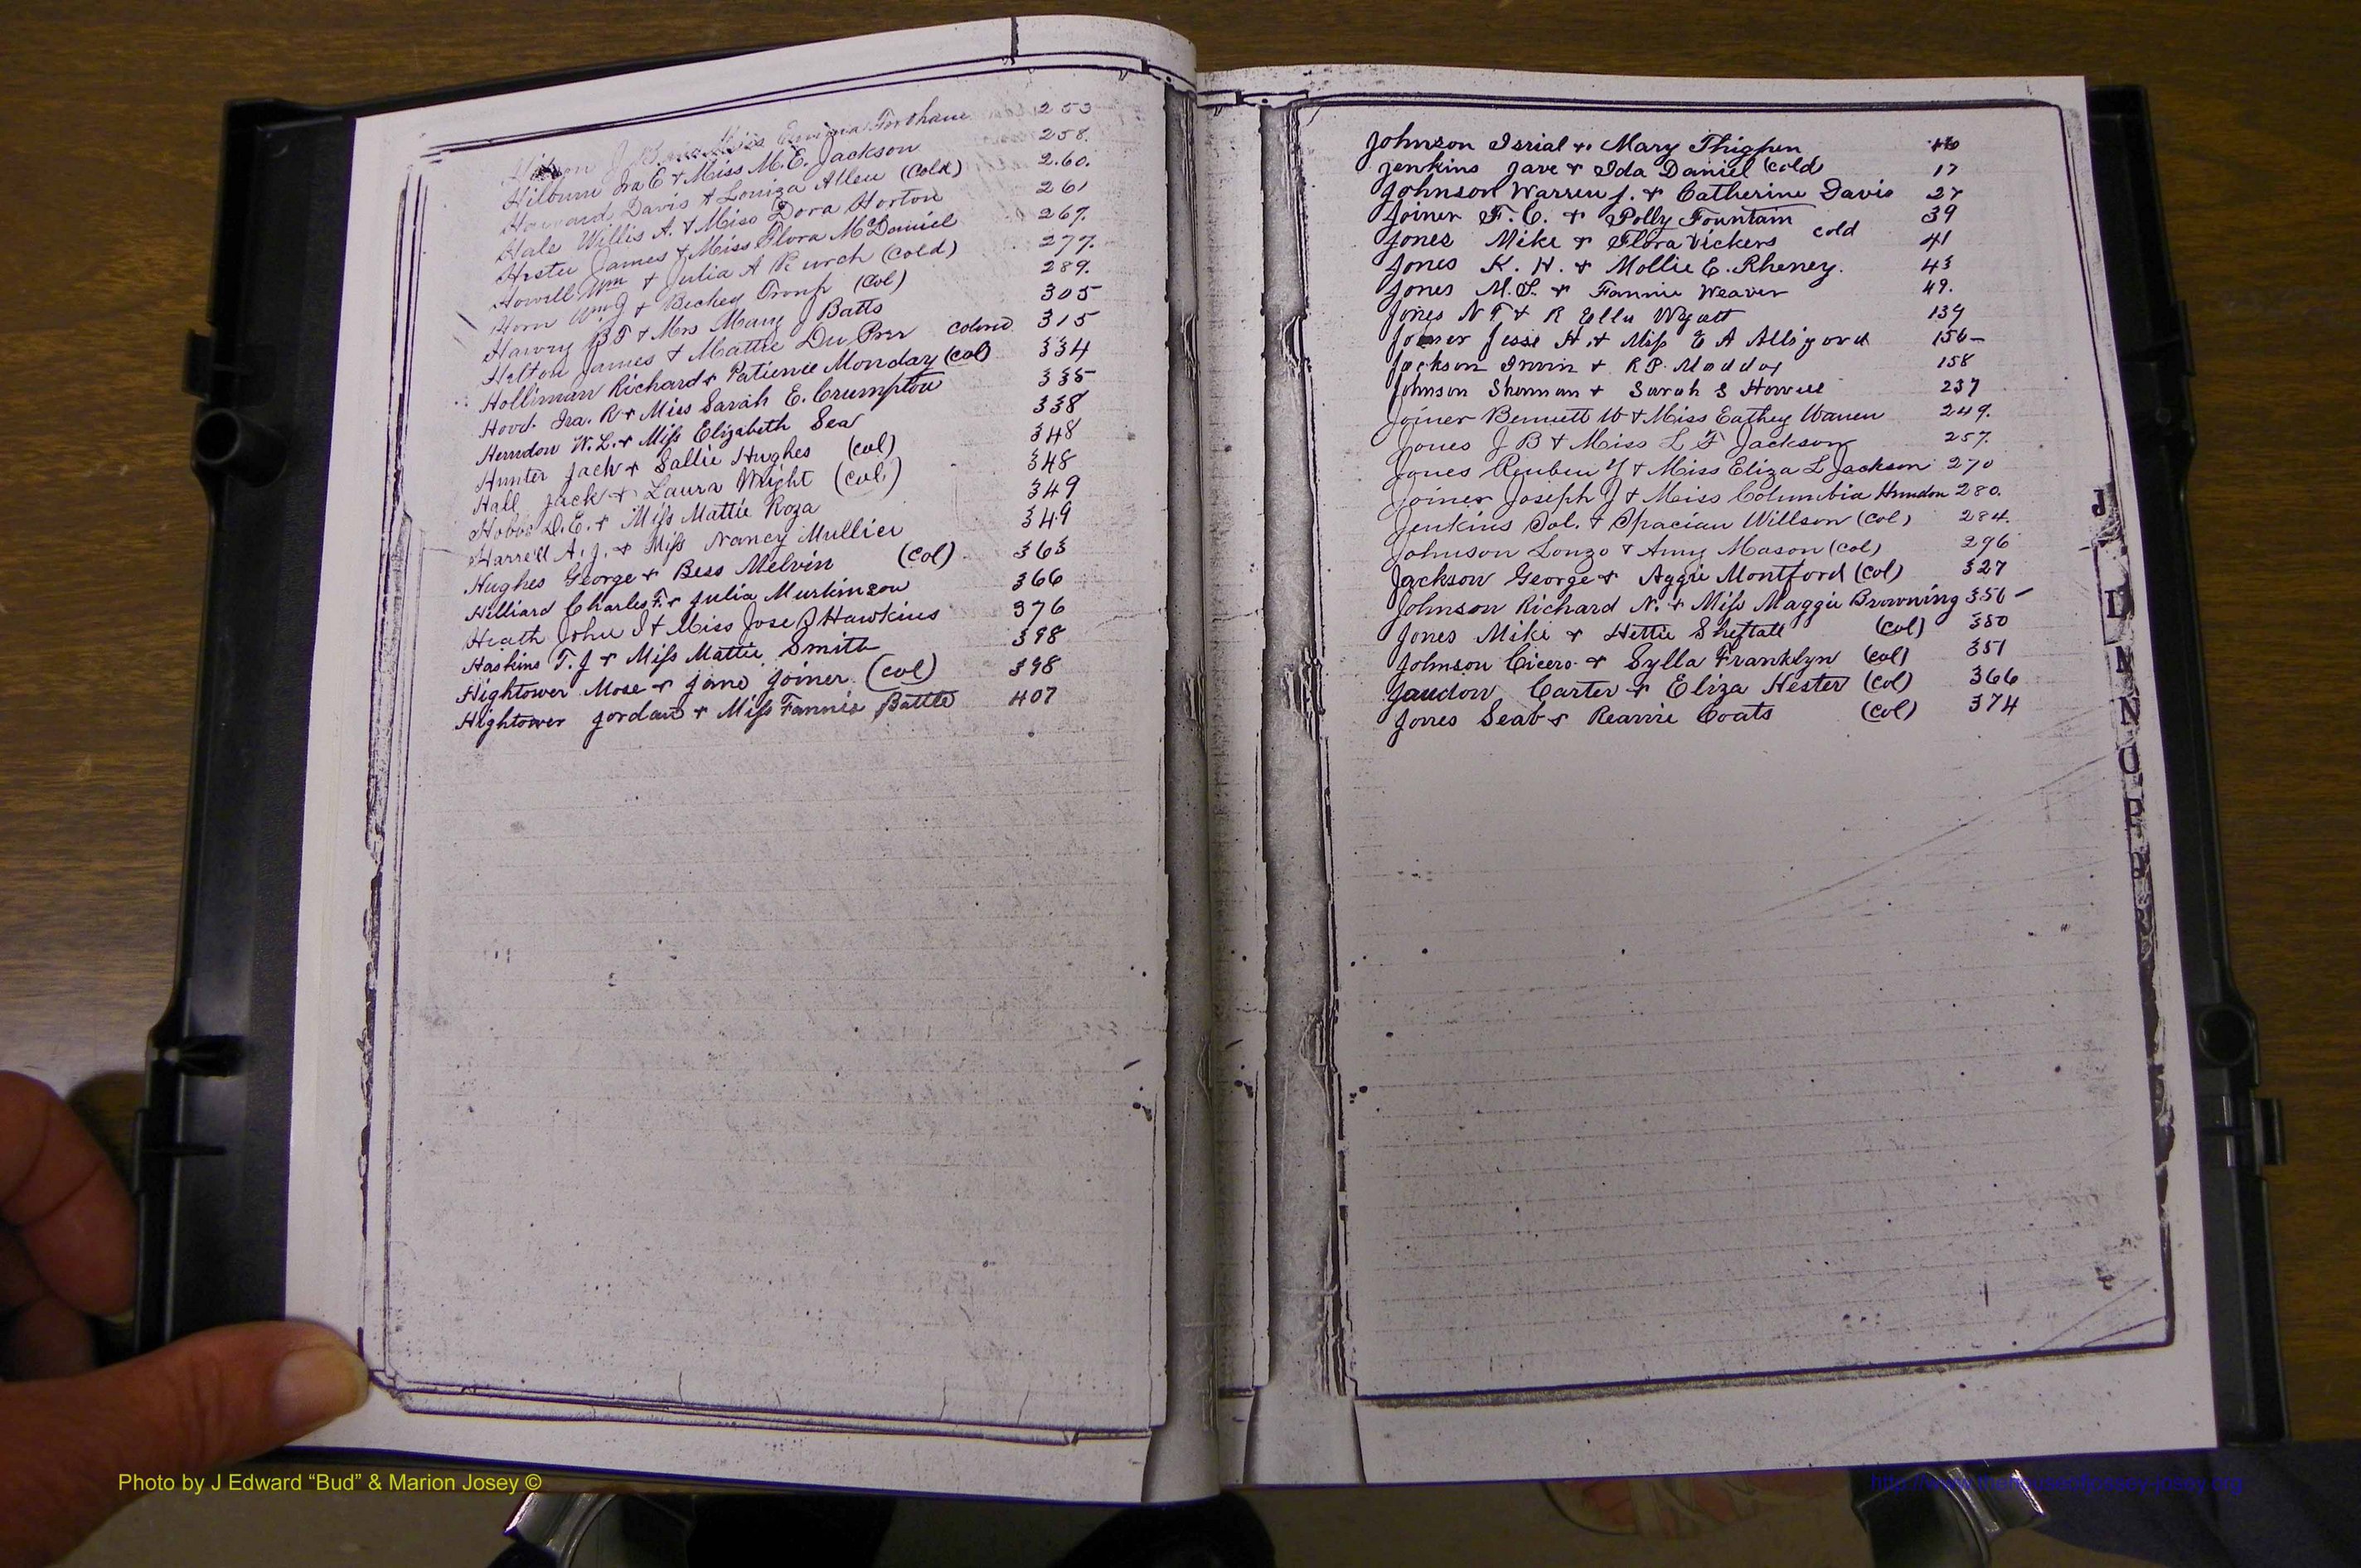 J Miss Fordham 253
Hilburn Ira E & Miss M. E. Jackson 258.
Howard Davis & Louiza Allen (Cold) 260.
Hale Willis A. & Miss Dora Horton 261
Hester James & Miss Flora McDaniel 267.
Howell Wm & Julia A Burch (Cold) 277.
Horn Wm J & Beckey Troup (Col) 289.
B F & Mrs Mary J Batts 305
Hilton James & Mattie Du Pree Colored 315
Holliman Richard & Patience Monday (Col) 334
Hood Ira. R & Miss Sarah E. Crumpton 335
Herndon W. L. & Miss Elizabeth Sea 338
Hunter Jack & Sallie Hughes (Col) 348
Hall Jack & Laura Wright (Col) 348
Hobbs D. E. & Miss Mattie Roza 349
Harrell A. J. & Miss Nancy Mullier 349
Hughes George & Bess Melvin (Col) 363
Hilliard Charles F. & Julia Murkinson 366
Heath John I & Miss Jose J Hawkins 376
Haskins T. J & Miss Mattie Smith 398
Hightower Mose & Jane Joiner (Col) 398
Hightower Jordan & Miss Fannie Battle 407
Johnson Isrial & Mary Thigpen 16
Jenkins Jave & Ida Daniel (Cold) 17
Johnson Warren J. & Catherine Davis 27
Joiner F. C. & Polly Fountain 39
Jones Mike & Flora Vickers Cold 41
Jones K. H. & Mollie E. Rheney. 43
Jones M. S. & Fannie Weaver 49.
Jones N T & R Ella Wyatt 139
Joiner Jesse H & Miss E A Alligood 156
Jackson Irwin & R P. Maddox 158
Johnson Sherman & Sarah S Howell 237
Joiner Bennett W & Miss Eathey Warren 249.
Jones J B & Miss L F Jackson 257.
Jones Reuben Y & Miss Eliza L Jackson 270
Joiner Joseph J & Miss Columbia Herndon 280.
Jenkins Sol. & Spacian Willson (Col) 284.
Johnson Lonzo & Anny Mason (Col) 296
Jackson George & Aggie Montford (Col) 327
Johnson Richard N. & Miss Maggie Browning 356
Jones Mike & Hettie Sheftall (Col) 350
Johnson Cicero & Sylla Franklyn (Col) 351
Jaudon Carter & Eliza Hester (Col) 366
Jones Seab & Rearrie Coats (Col) 374
J
L
M
N
O
P
Photo by J Edward “Bud” & Marion Josey ©
http://www.thehouseofjossey-josey.org